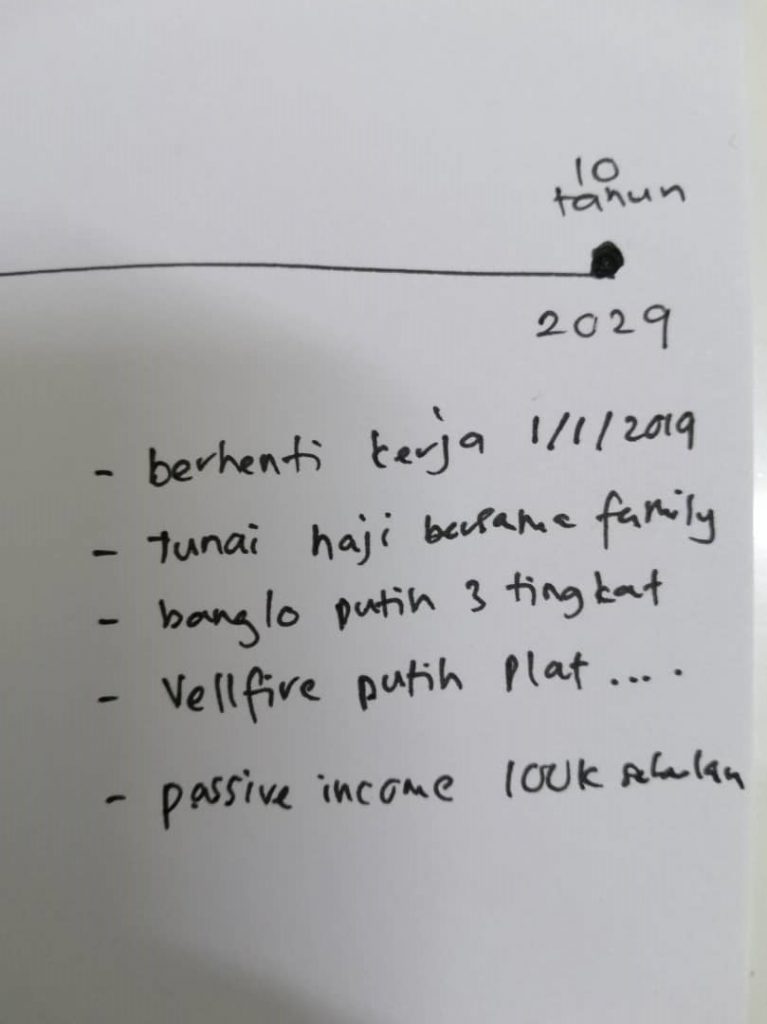 10
tahun
2029
- berhenti kerja 1/1/2019
- tunai haji bersama family
- banglo putih 3 tingkat
- Vellfire putih plat ....
- passive income 100K sebulan